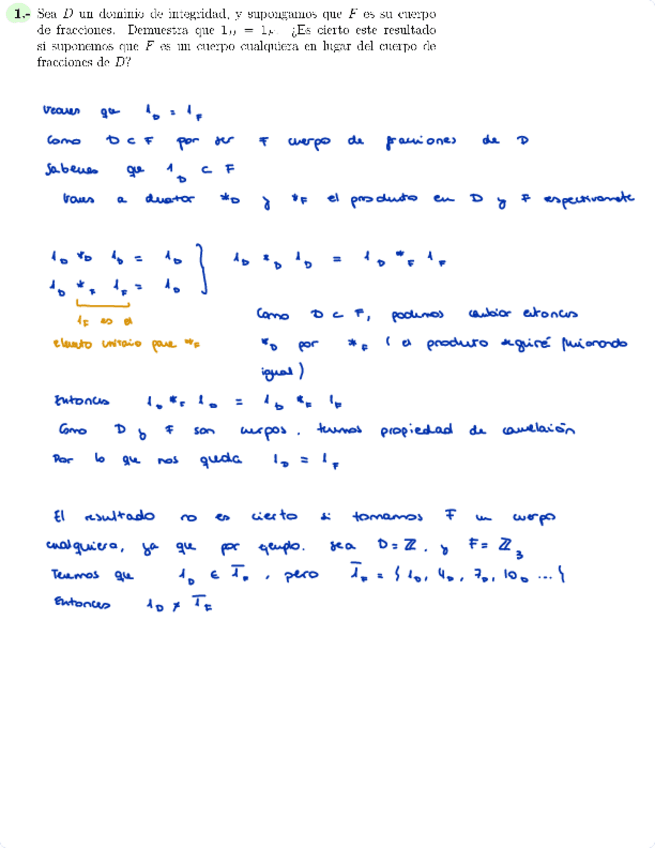 1.- Sea D un dominio de integridad, y supongamos que F es su cuerpo
de fracciones. Demuestra que 1_D = 1_F. ¿Es cierto este resultado
si suponemos que F es un cuerpo cualquiera en lugar del cuerpo de
fracciones de D?
Veamos que 1_D = 1_F
Como D ⊂ F por ser F cuerpo de fracciones de D
Sabemos que 1_D ⊂ F
Vamos a *_D y *_F el producto en D y F espectivamente
1_D *_D 1_D = 1_D } 1_D *_D 1_D = 1_D *_F 1_F
1_D *_F 1_F = 1_D
1_F es el
elemento unitario para *_F
Como D ⊂ F, podemos cambiar entonces
*_D por *_F ( el producto seguirá funcionando
igual)
Entonces 1_D *_F 1_D = 1_D *_F 1_F
Como D y F son cuerpos, tenemos propiedad de cancelación
Por lo que nos queda 1_D = 1_F
El resultado no es cierto si tomamos F un cuerpo
cualquiera, ya que por ejemplo. sea D = ℤ. y F = ℤ_3
Tenemos que 1_D ∈ 1̅_F, pero 1̅_F = { 1_D, 4_D, 7_D, 10_D ... }
Entonces 1_D ≠ 1̅_F